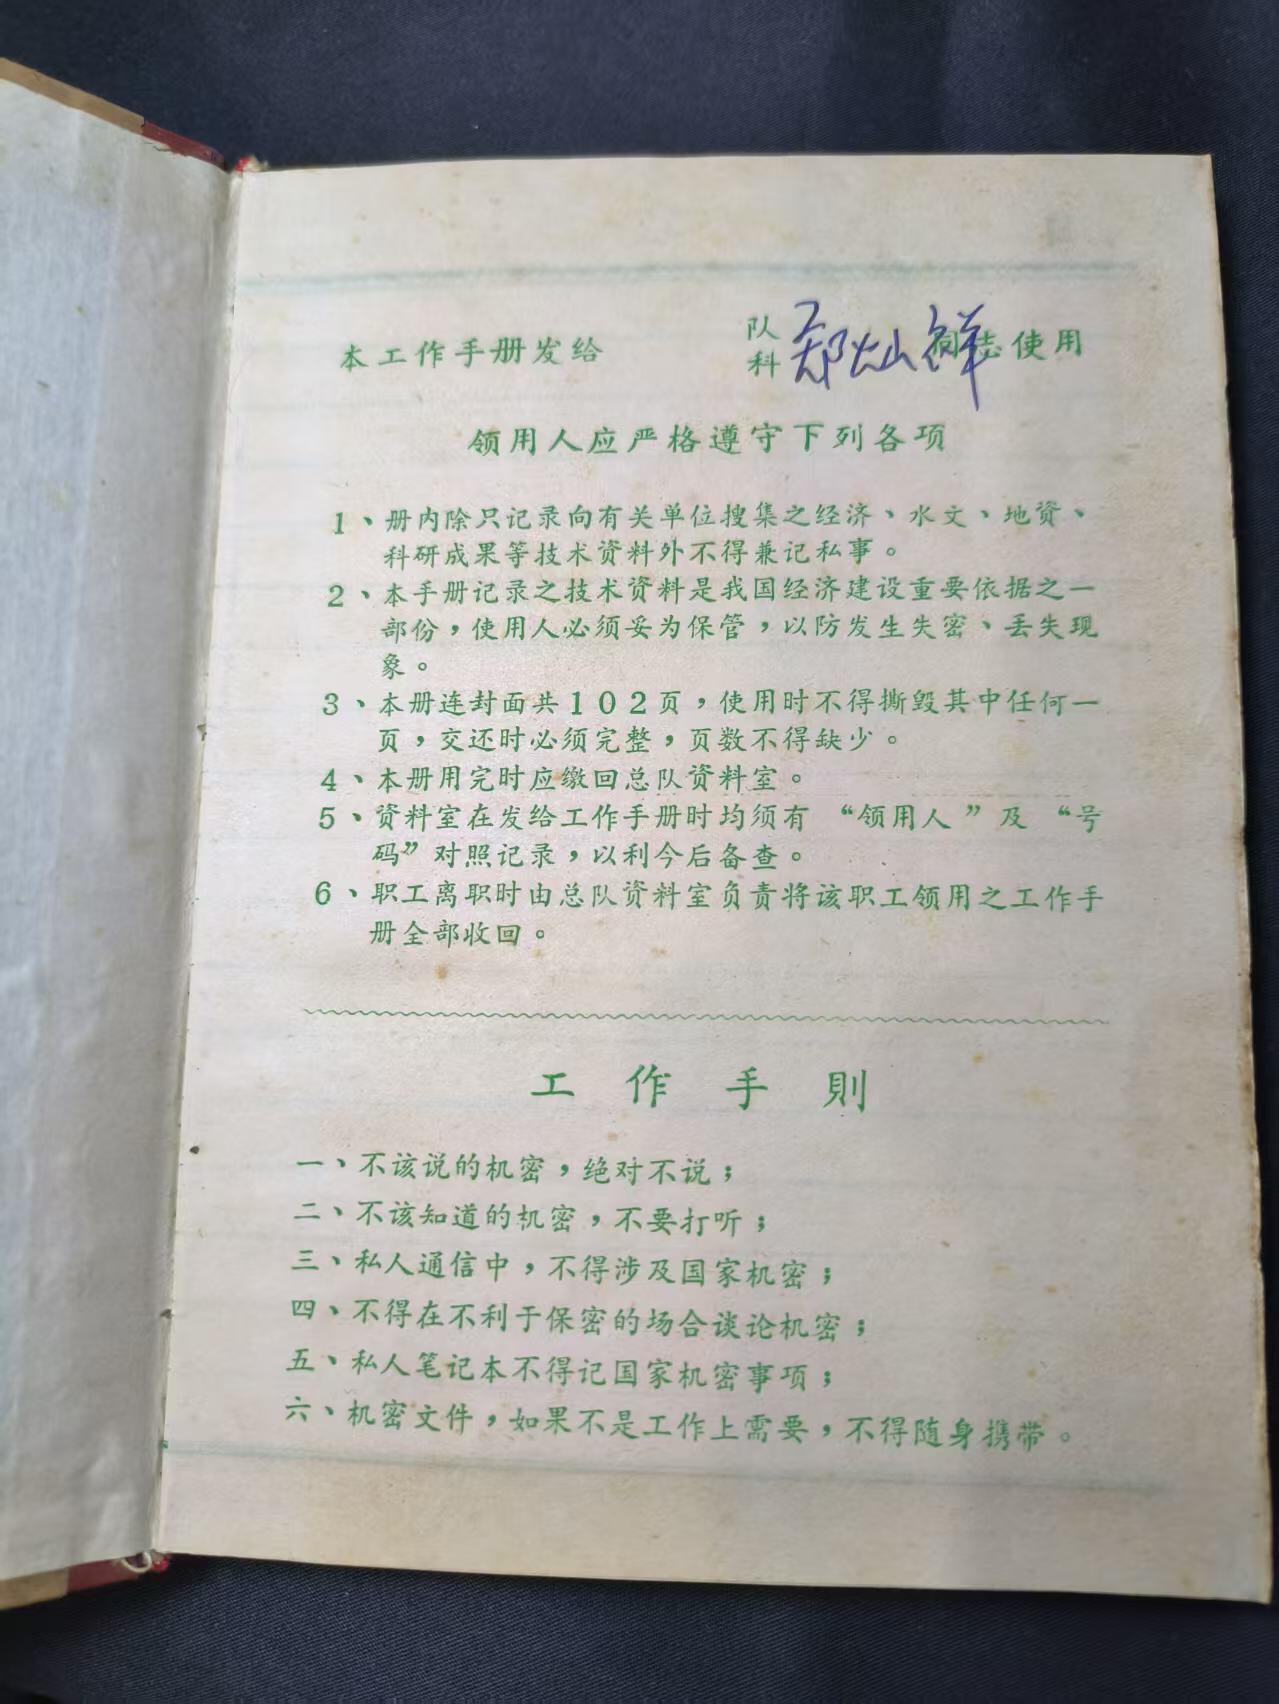 本工作手册发给 队科 郑灿祥 同志使用
领用人应严格遵守下列各项
1、册内除只记录向有关单位搜集之经济、水文、地资、
科研成果等技术资料外不得兼记私事。
2、本手册记录之技术资料是我国经济建设重要依据之一
部份，使用人必须妥为保管，以防发生失密、丢失现
象。
3、本册连封面共102页，使用时不得撕毁其中任何一
页，交还时必须完整，页数不得缺少。
4、本册用完时应缴回总队资料室。
5、资料室在发给工作手册时均须有“领用人”及“号
码”对照记录，以利今后备查。
6、职工离职时由总队资料室负责将该职工领用之工作手
册全部收回。
工作手則
一、不该说的机密，绝对不说；
二、不该知道的机密，不要打听；
三、私人通信中，不得涉及国家机密；
四、不得在不利于保密的场合谈论机密；
五、私人笔记本不得记国家机密事项；
六、机密文件，如果不是工作上需要，不得随身携带。